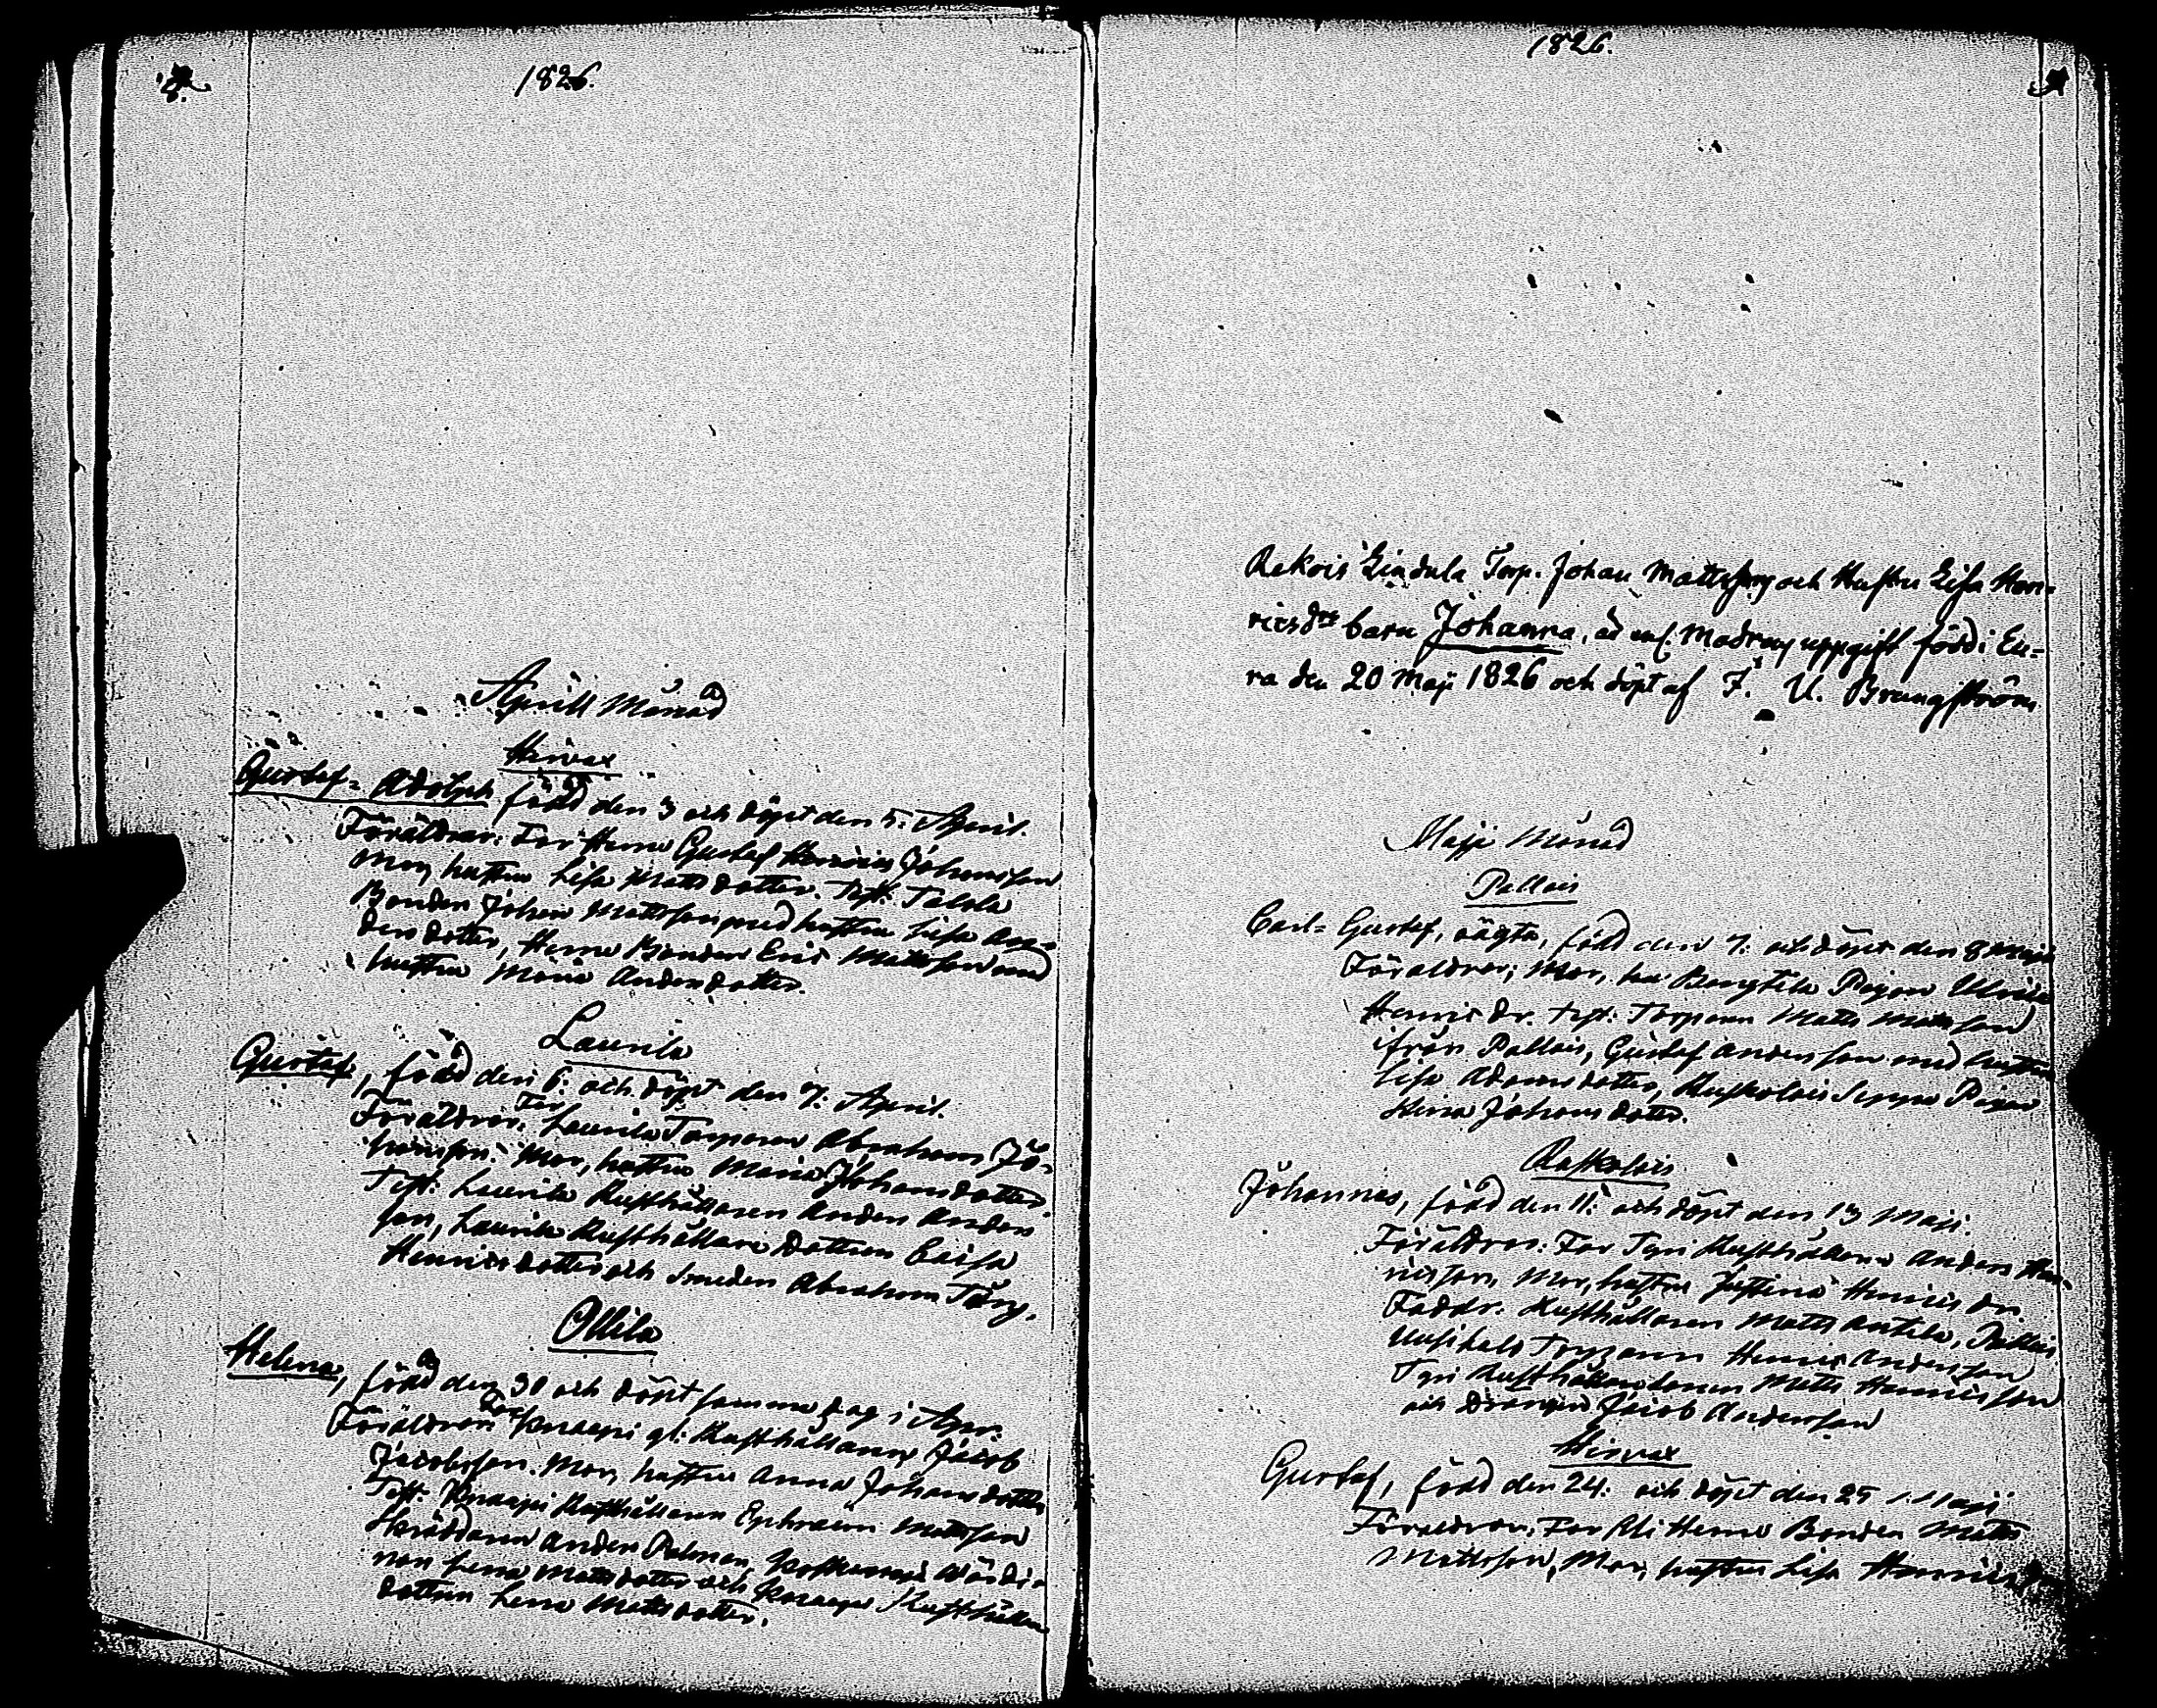 8.
1826.
Aprill Månad
Hirvax
Gustaf=Adolph född den 3 och döpt den 5. April.
Föräldrar: Far Herno Gustaf Henrics Johansson
Mor, hustru Lisa Matts dotter. Test: Talola
Bonden Johan Mattsson med hustru Lisa An=
ders dotter, Herno Bonden Eric Mattsson med
hustru Maria Andersdotter.
Laurila
Gustaf, född den 6: och döpt den 7: April.
Föräldrar: Far Laurila Torparen Abraham Jo=
hansson. Mor, hustru Maria Johansdotter.
Test: Laurila Rusthållaren Anders Anders
son, Laurila Rusthållare Dottren Caisa
Henricsdotter och Smeden Abraham Törg.
Ollila
Helena, född den 30 och döpt samma dag i Apr:
Föräldrar: Far Knaapi gl: Rusthållaren Jacob
Jacobsson. Mor, hustru Anna Johansdotter
Test: Knaapi Rusthållaren Ephraim Mattsson
Skräddaren Anders Palman, Wärdin=
nan Lena Mattsdotter och Knaapi Rusthållare
dottren Lena Mattsdotter.
1826.
9
Rekois Lindula Torp. Johan Mattsson och Hustru Lisa Hen=
ricsdrs barn Johanna, är enl. Modrens uppgift född i Eu=
ra den 20 Maji 1826 och döpt af F. U. Brungström
Maji Månad
Pallais
Carl=Gustaf, oägta, född den 7: och döpt den 8 Maji
Föräldrar; Mor, Bengtila Pigan Ulrica
Henricsdr. test: Torparen Matts Mattsson
ifrån Pallais, Gustaf Andersson med hustru
Lisa Adamsdotter, Ruskolais Seppä Pigan
Stina Johansdotter.
Raskolais
Johannes, född den 11: och döpt den 13 Maji.
Föräldrar: Far Tyri Rusthållaren Anders Hen=
ricsson, Mor, hustru Justina Henrics dr.
Faddr. Rusthållaren Matts Antila, Pallais
Uusitalo Torparen Henric Andersson
Tyri Rusthållare sonen Matts Henricsson
och Drängen Jacob Andersson
Hirvax
Gustaf, född den 24: och döpt den 25 Maji
Föräldrar, Far Yli Herno Bonden Matts
Mattsson, Mor, hustru Lisa Henrics dr